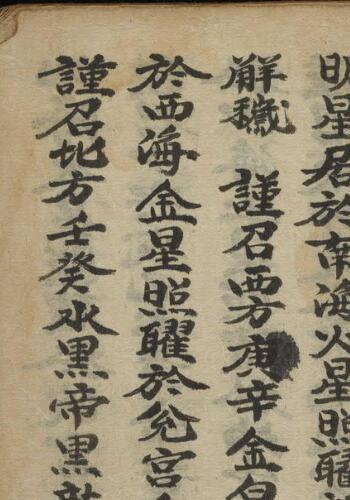 明星居於南海火星照耀
解穢 謹召西方庚辛金白
於西海金星照耀於兊宮
謹召北方壬癸水黑帝黑